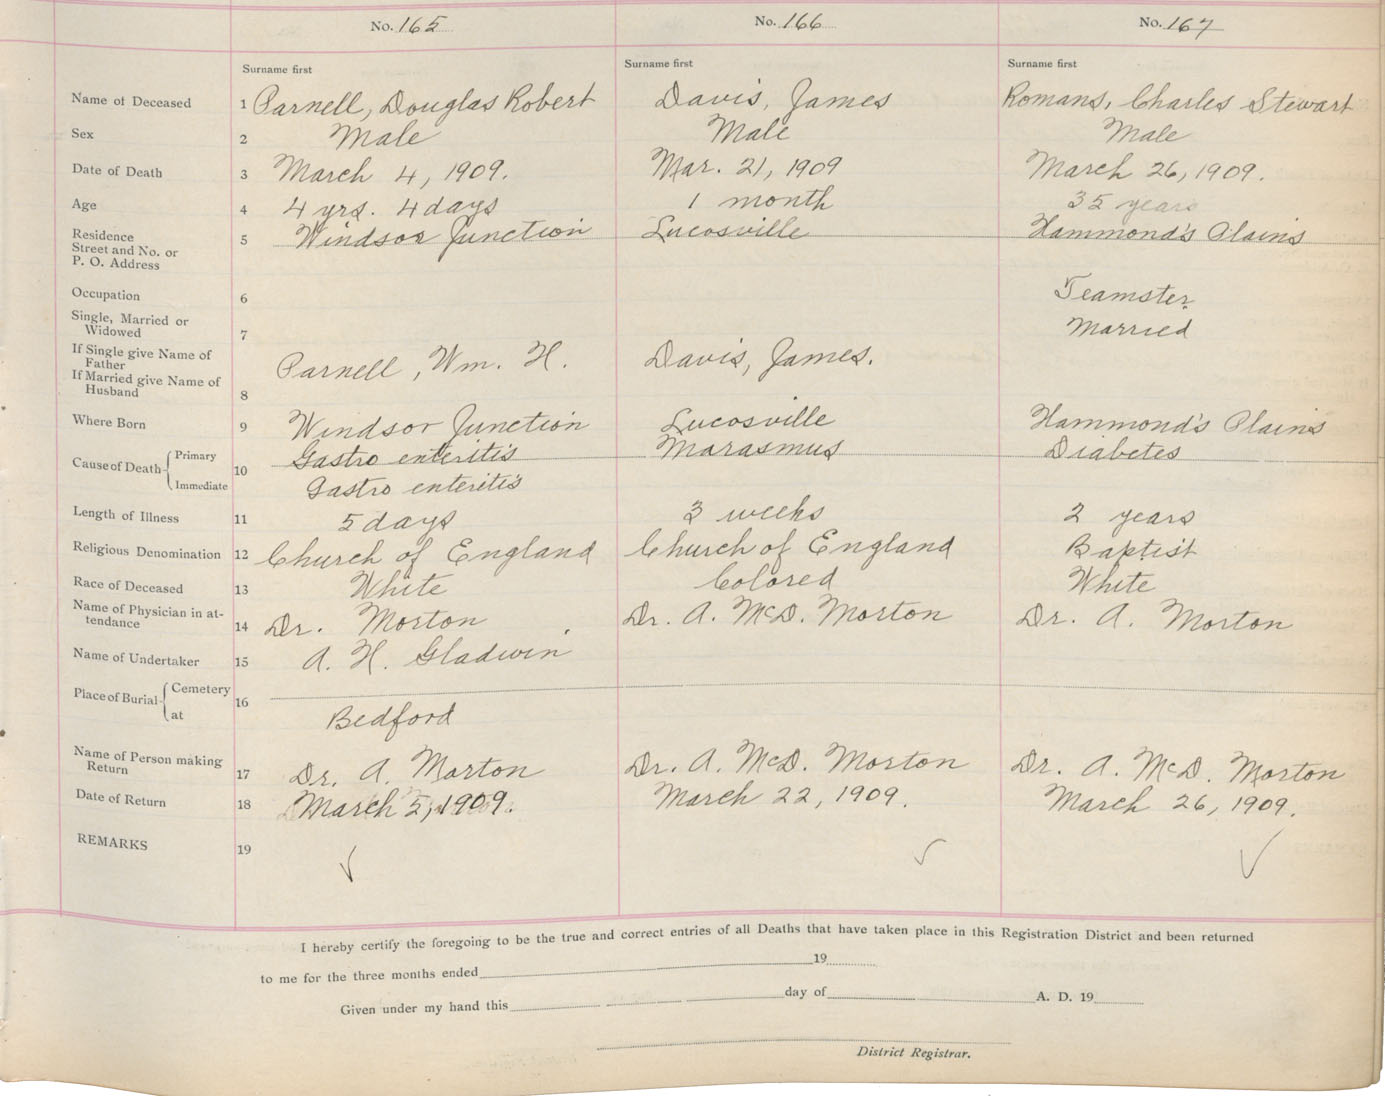 No. 165 No. 166 No. 167
Surname first Surname first Surname first
Name of Deceased 1 Parnell, Douglas Robert Davis, James Romans, Charles Stewart
Sex 2 Male Male Male
Date of Death 3 March 4, 1909. Mar. 21, 1909 March 26, 1909.
Age 4 4 yrs. 4 days 1 month 35 years
Residence 5 Windsor Junction Lucosville Hammond's Plains
Street and No. or
P. O. Address
Occupation 6 Teamster
Single, Married or
Widowed 7 Married
If Single give Name of
Father Parnell, Wm. H. Davis, James.
If Married give Name of
Husband 8
Where Born 9 Windsor Junction Lucosville Hammond's Plains
Cause of Death Primary 10 Gastro enteritis Marasmus Diabetes
Immediate Gastro enteritis
Length of Illness 11 5 days 3 weeks 2 years
Religious Denomination 12 Church of England Church of England Baptist
Race of Deceased 13 White Colored White
Name of Physician in at-
tendance 14 Dr. Morton Dr. A. McD. Morton Dr. A. Morton
Name of Undertaker 15 A. H. Gladwin
Place of Burial Cemetery 16
at Bedford
Name of Person making
Return 17 Dr. A. Morton Dr. A. McD. Morton Dr. A. McD. Morton
Date of Return 18 March 5, 1909. March 22, 1909. March 26, 1909.
REMARKS 19 ✓ ✓ ✓
I hereby certify the foregoing to be the true and correct entries of all Deaths that have taken place in this Registration District and been returned
to me for the three months ended 19
Given under my hand this day of A. D. 19
District Registrar.